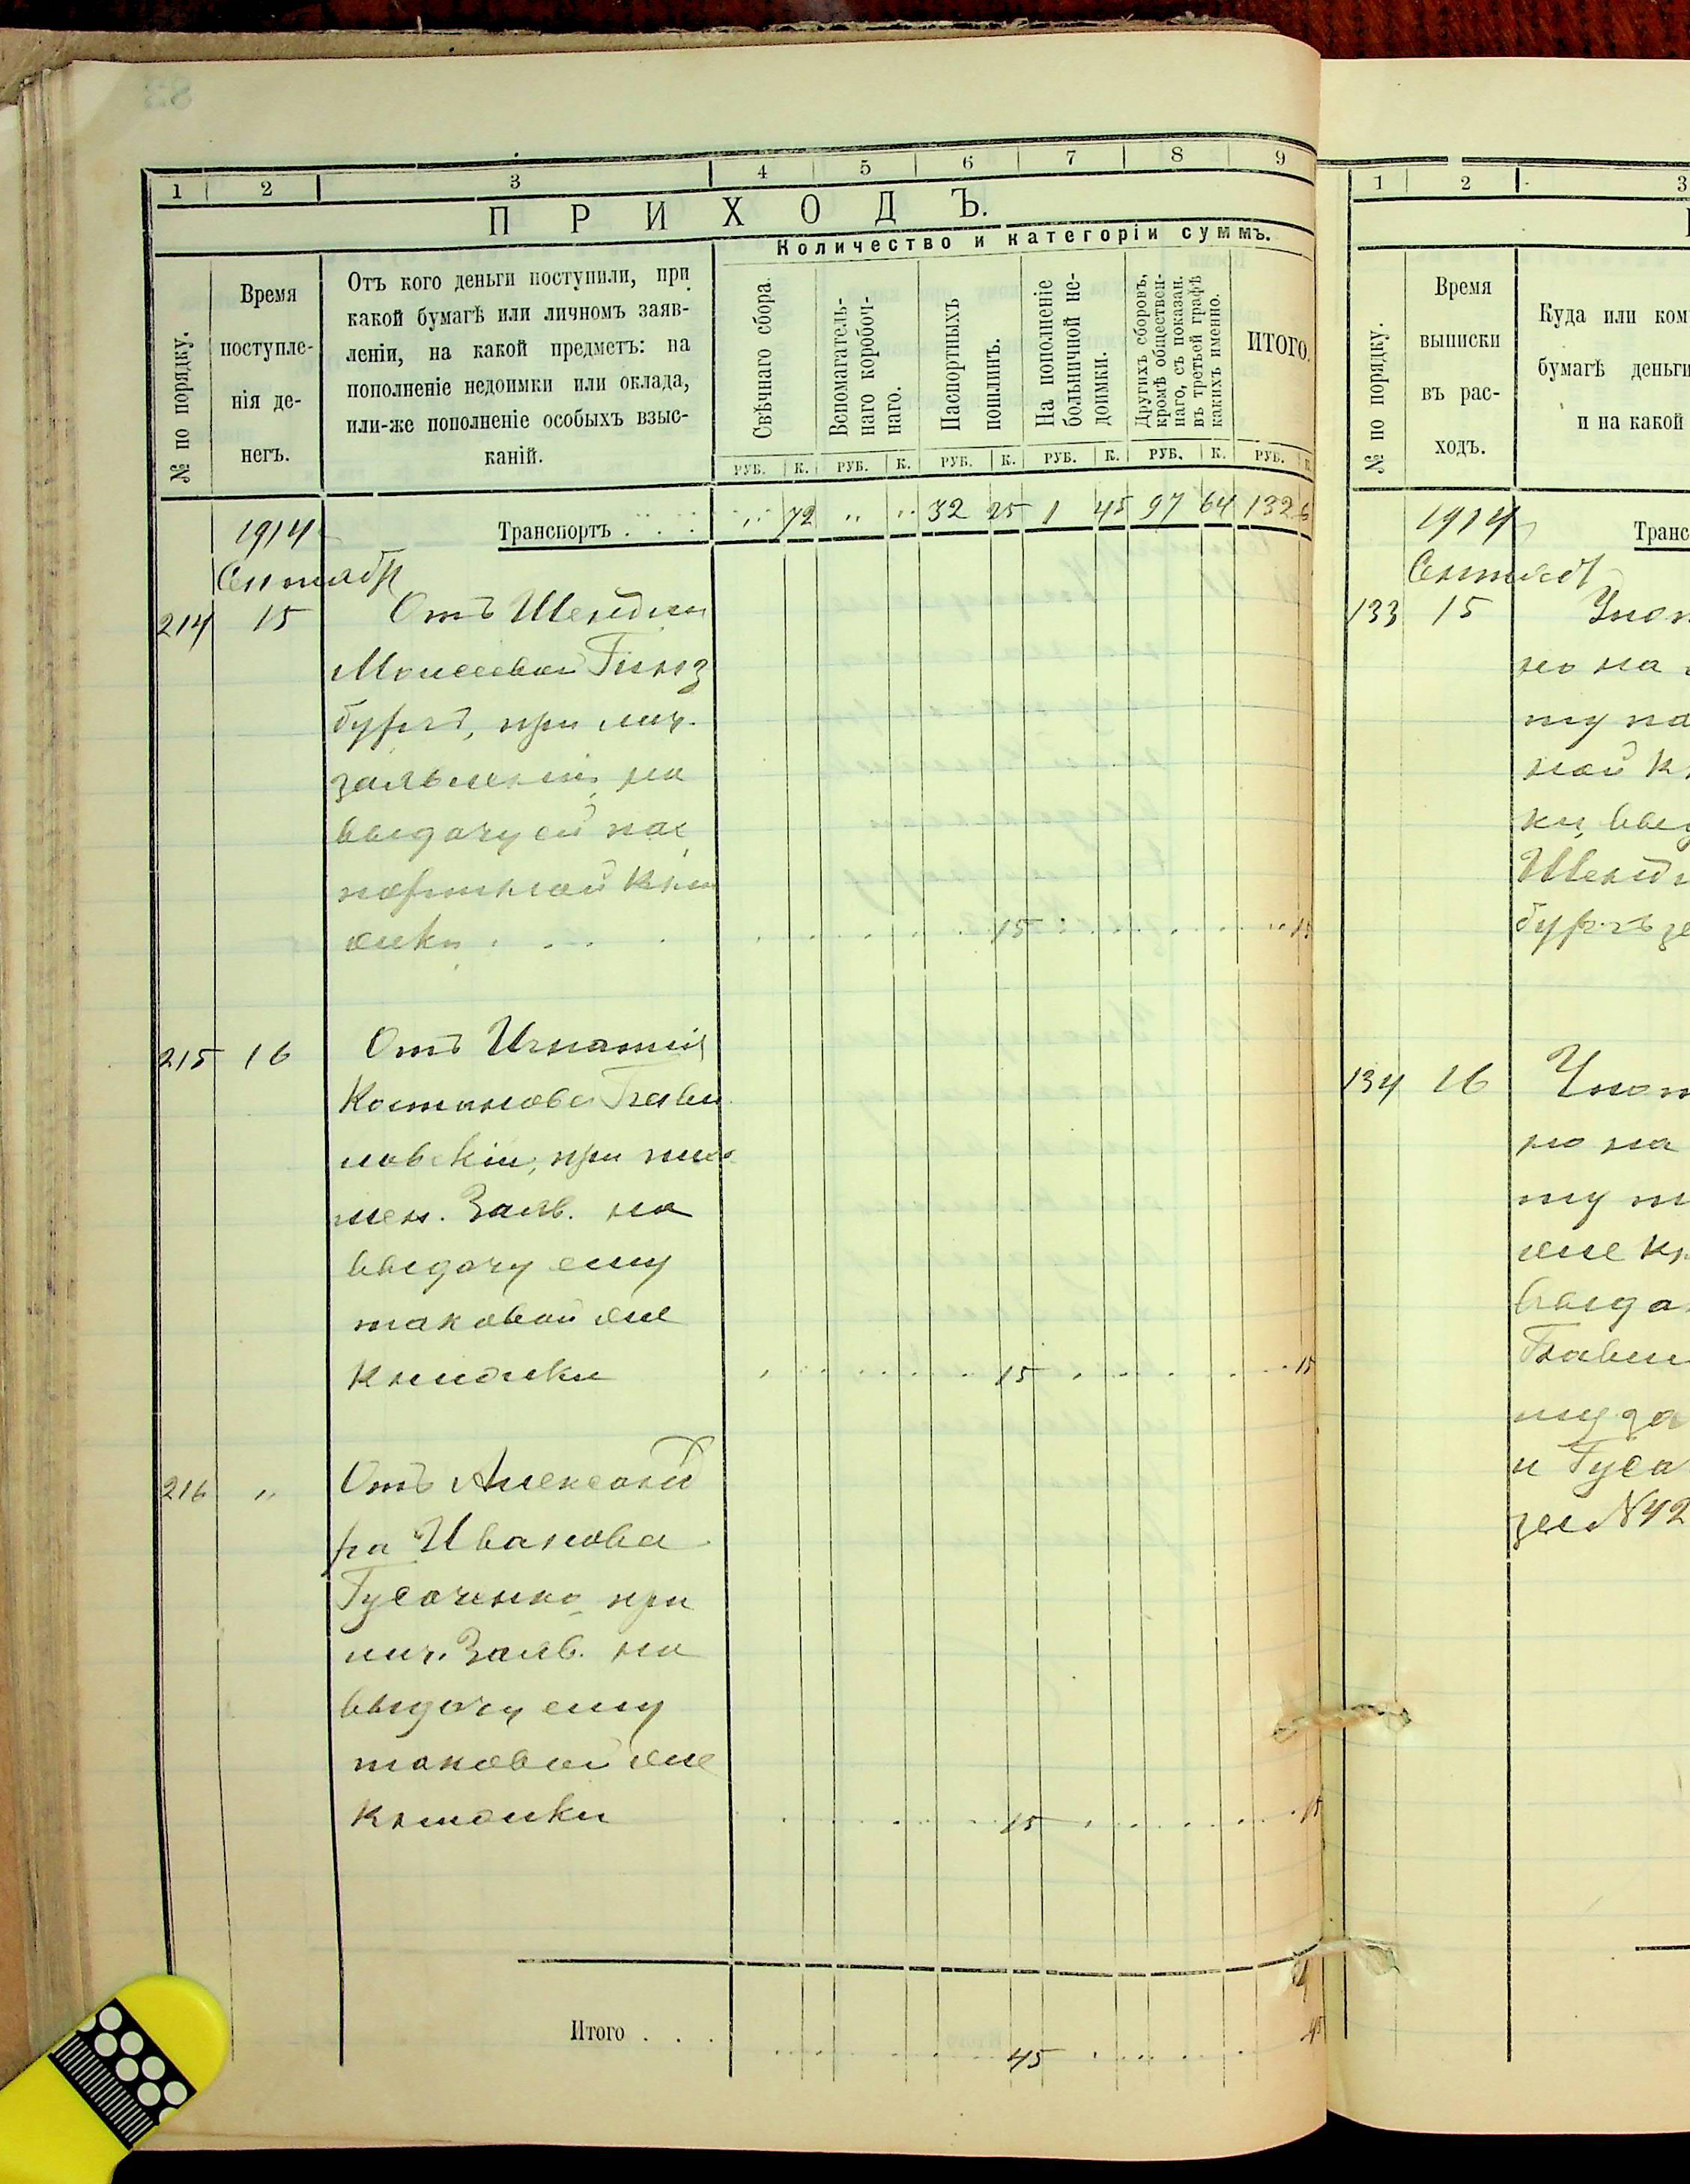 1 2 3 4 5 6 7 8 9
ПРИХОДЪ.
Количество и категоріи суммъ.
№ по порядку.
Время
поступле-
нія де-
негъ.
Отъ кого деньги поступили, при
какой бумагѣ или личномъ заяв-
леніи, на какой предметъ: на
пополненіе недоимки или оклада,
или-же пополненіе особыхъ взыс-
каній.
Свѣчнаго сбора.
Вспомагатель-
наго коробоч-
наго.
Паспортныхъ
пошлинъ.
На пополненіе
больничной не-
доимки.
Другихъ сборовъ,
кромѣ обществен-
наго, съ показан.
въ третьей графѣ
какихъ именно.
ИТОГО.
РУБ. К. РУБ. К. РУБ. К. РУБ. К. РУБ. К. РУБ. К.
1914 Транспортъ . . . „ 72 „ „ 32 25 1 45 97 64 132 6
Сентябр
214 15 Отъ Шейдли
Моисеевой Гинз
бургъ, при лич.
заявленіи, на
выдачу ей пас
портной кни
жки . . . 15 „ 15
215 16 Отъ Игнатія
Костанова
при пись
мен. Заяв. на
выдачу ему
таковой же
книжки 15 15
216 „ Отъ Александ
ра Иванова
Гусаченко при
лич. Заяв. на
выдачу ему
таковой же
книжки 15 15
Итого . . . 45 45
1 2 3
№ по порядку.
Время
выписки
въ рас-
ходъ.
Куда или ком
бумагѣ деньги
и на какой
1914 Транс
Сентяб
133 15 Упот
но на
ту па
ной к
ки, выд
Шейд
бургъ за
134 16 Упот
но на
ту т
же кн
выда
му за
и Гуса
за №42